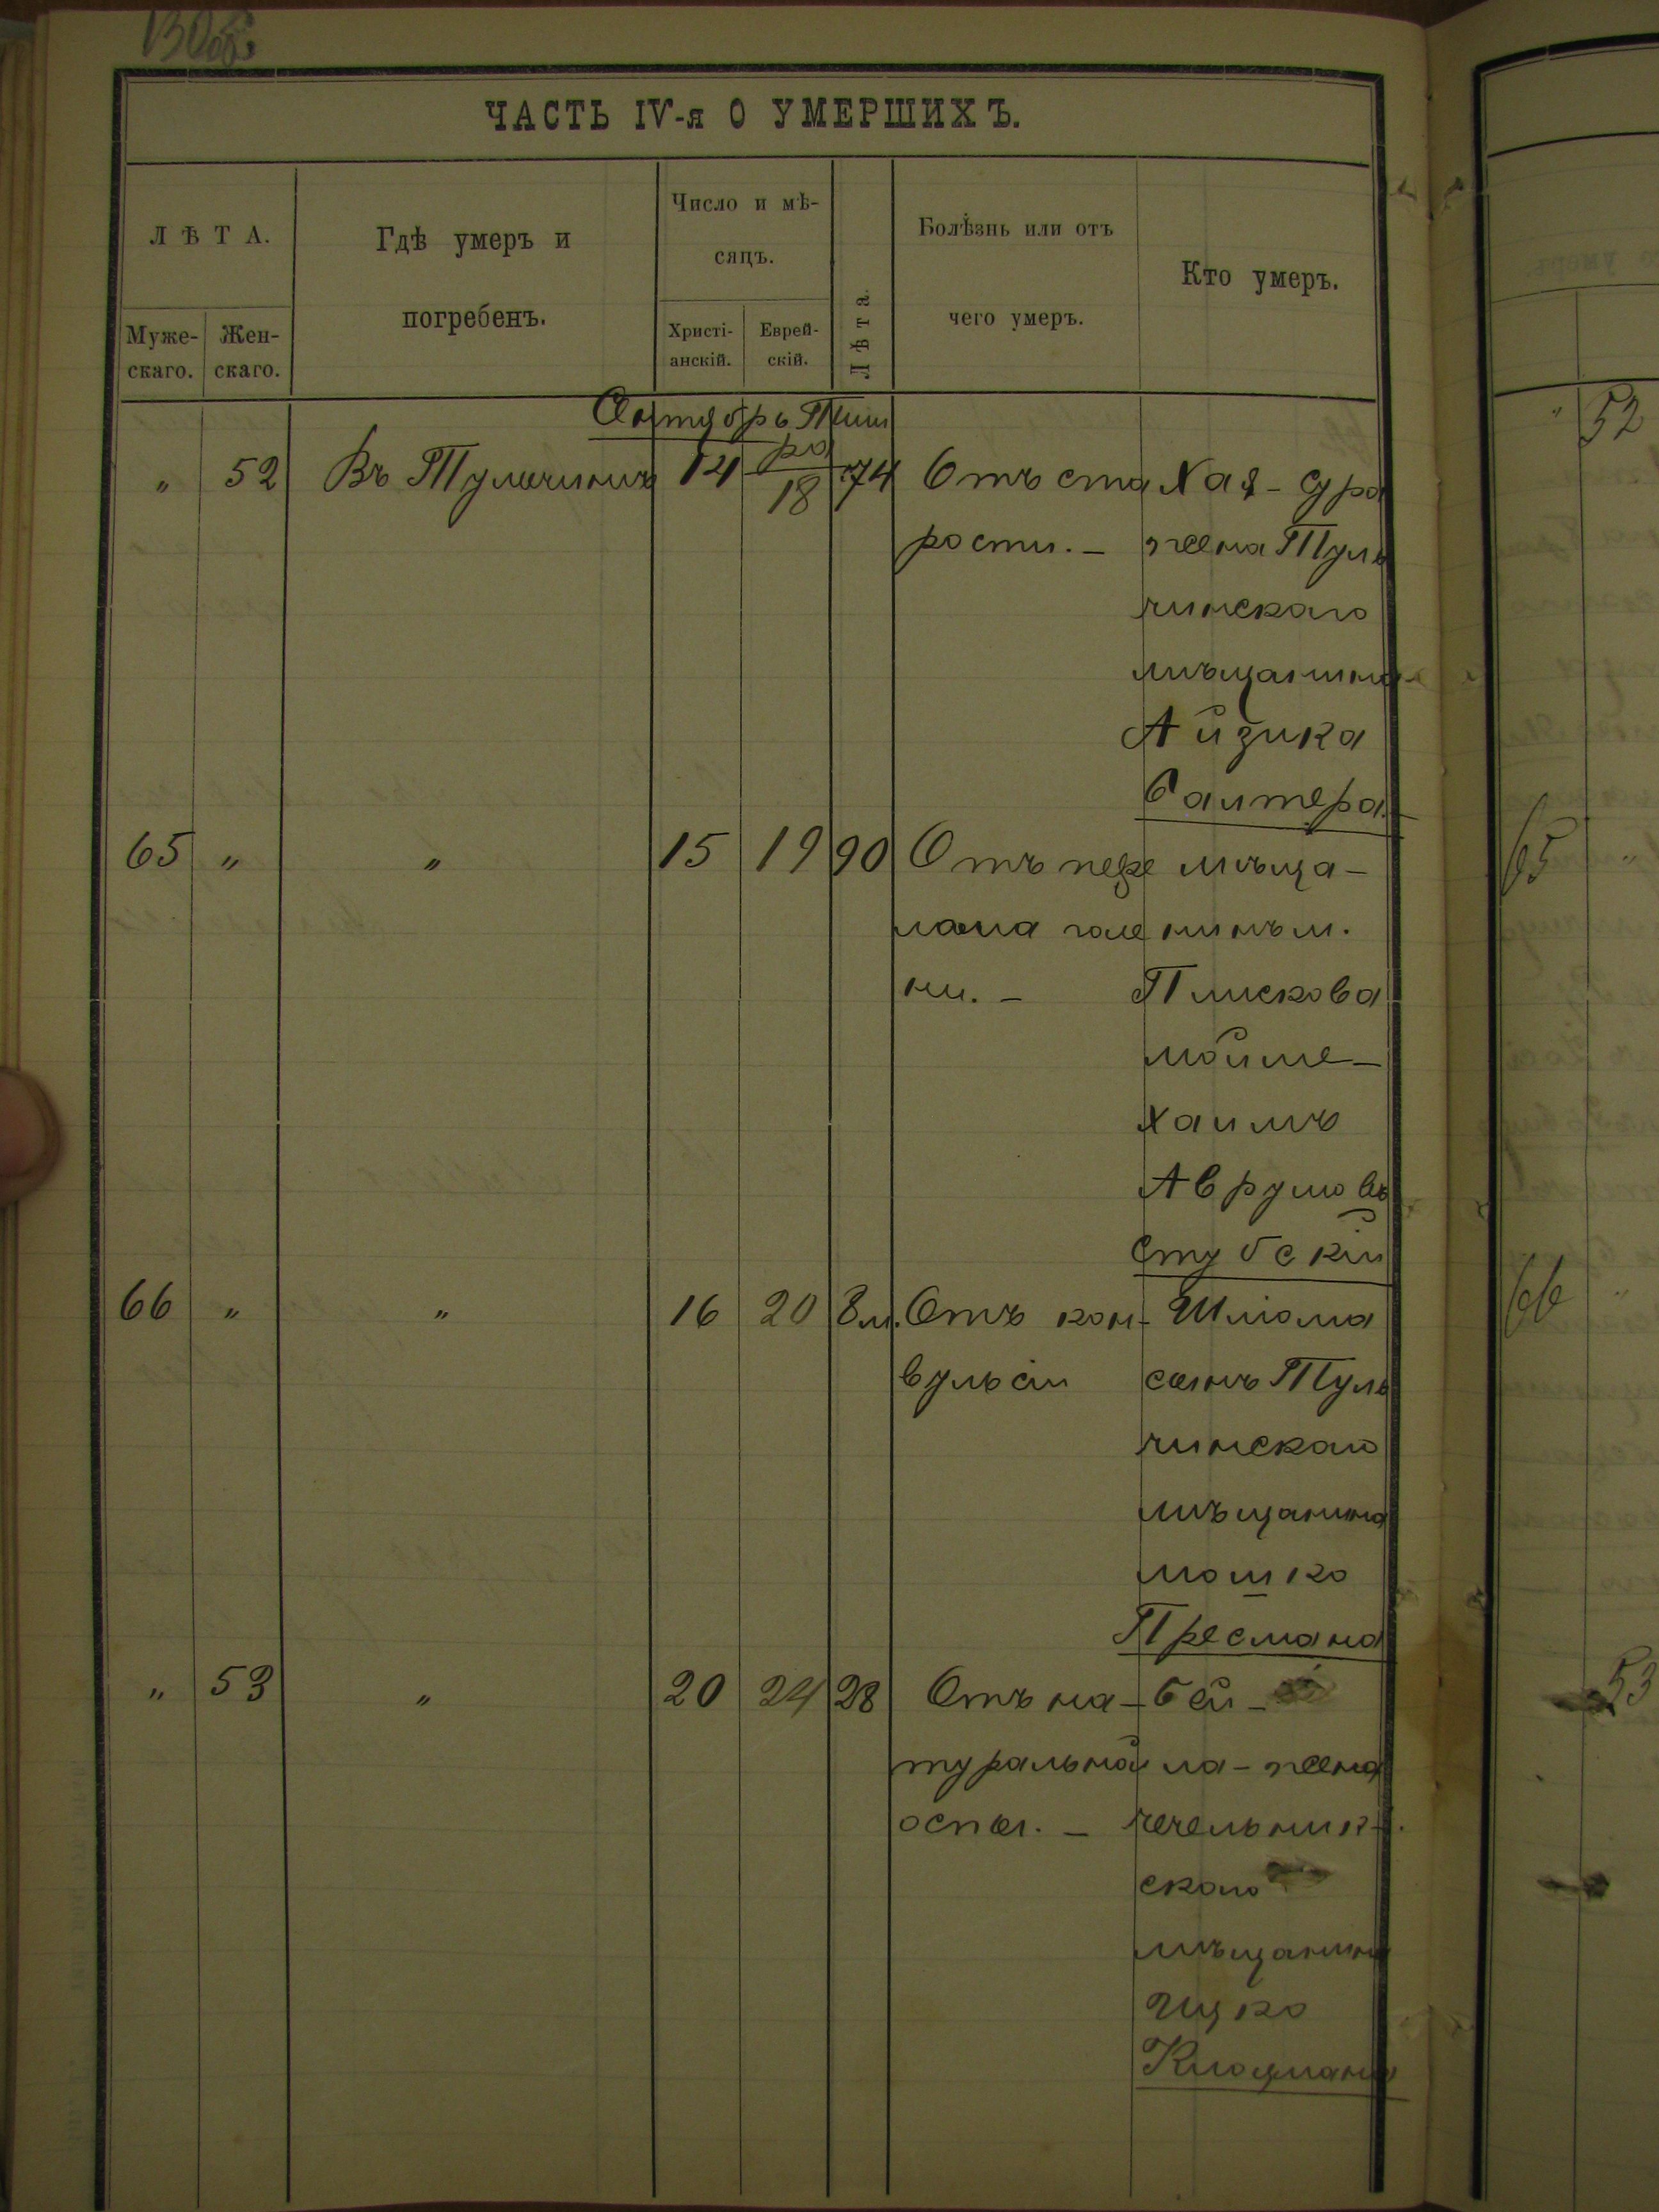 130об.
ЧАСТЬ IV-я О УМЕРШИХЪ.
ЛѢТА.
Муже-
скаго.
Жен-
скаго.
Гдѣ умеръ и
погребенъ.
Число и мѣ-
сяцъ.
Христі-
анскій.
Еврей-
скій.
Лѣта.
Болѣзнь или отъ
чего умеръ.
Кто умеръ.
Октябрь Тиш
ра
" 52 Въ Тульчинѣ 14 18 74 Отъ ста Хая-Сура
рости. — жена Туль
чинскаго
мѣщанина
Айзика
Балтера
65 " " 15 19 90 Отъ пере мѣща-
лома голе нинъ м.
ни. — Плискова
Мойше-
Хаимъ
Аврумовъ
Стубскій
66 " " 16 20 8м. Отъ кон- Шлома
вульсіи сынъ Туль
чинскаго
мѣщанина
Мошко
Пресмана
" 53 " 20 24 28 Отъ на- Бей-
туральной ла-жена
оспы. — Чечельник-
скаго
мѣщанина
Ицко
Клоцмана
52
65 "
66 "
53